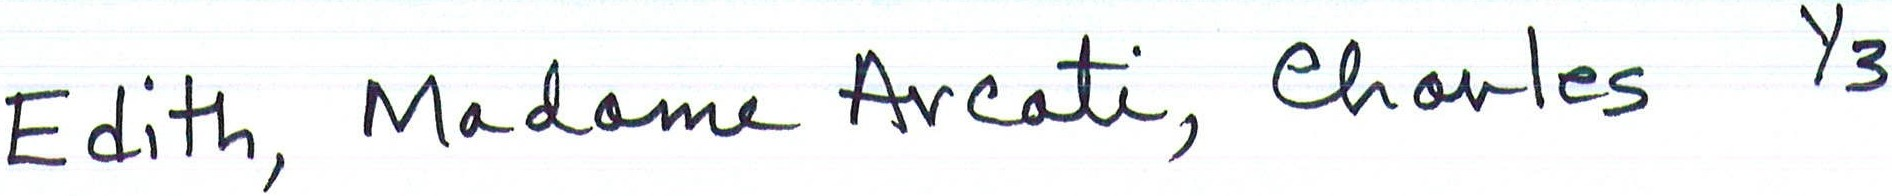 Edith, Madame Arcati, Charles 1/3